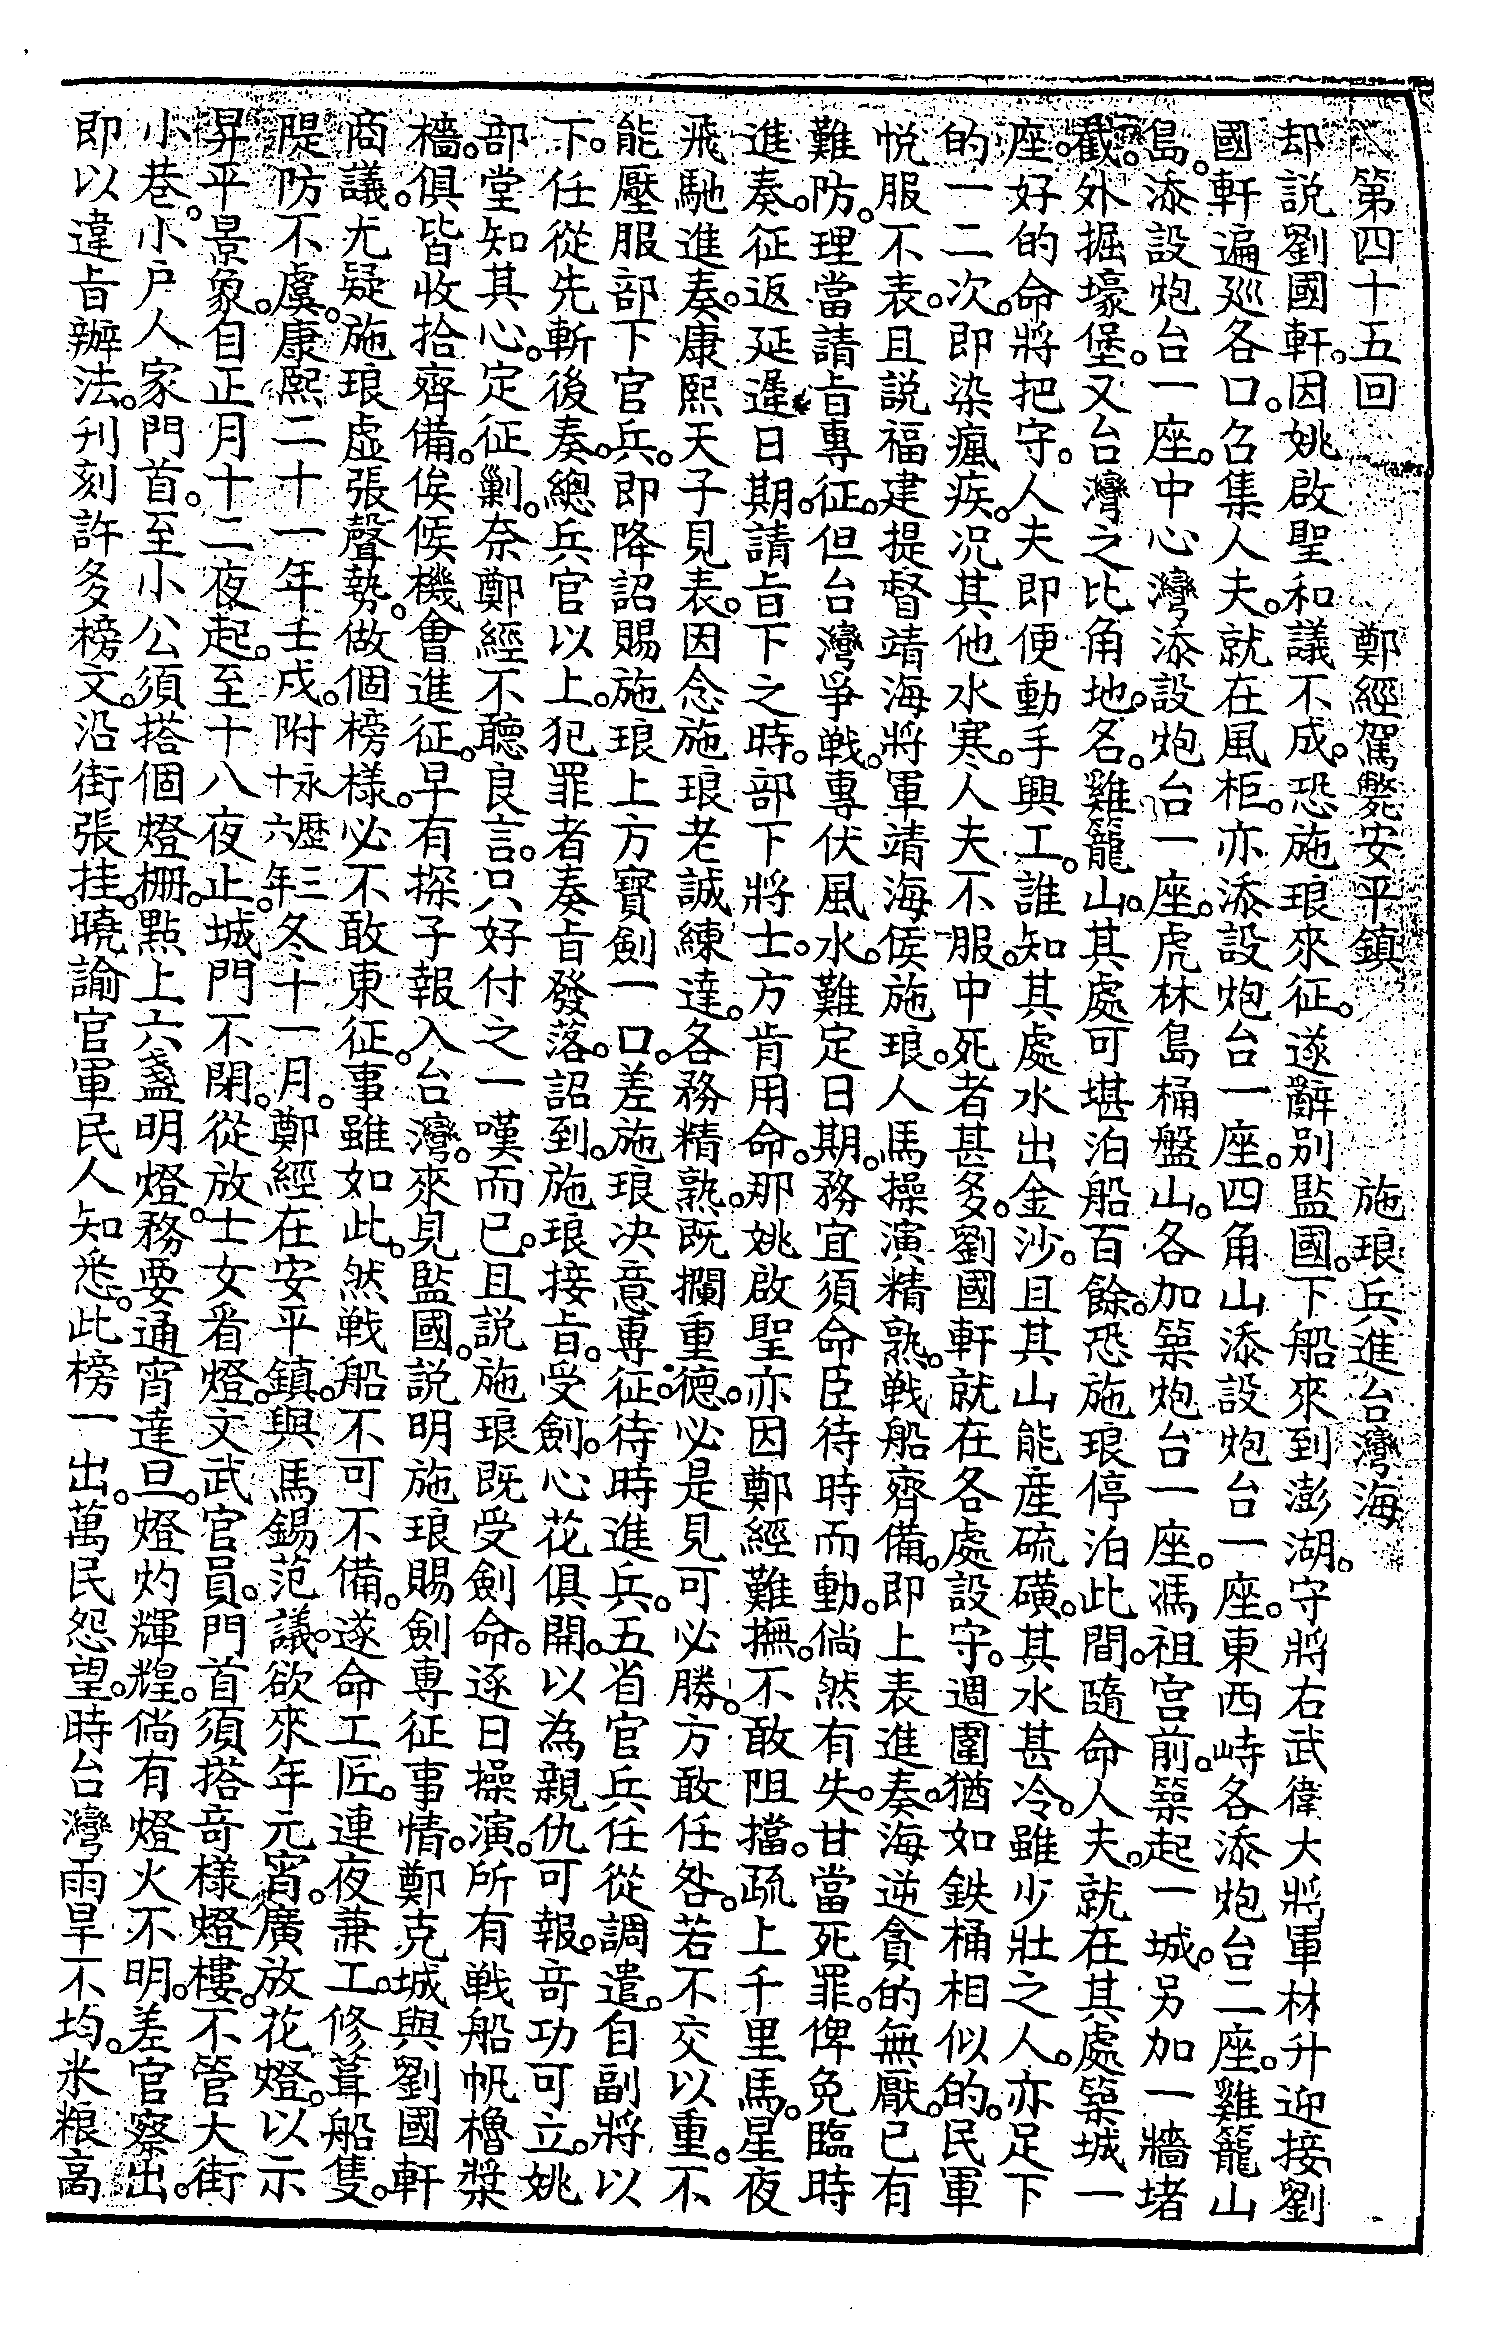 第四十五回　鄭經駕斃安平鎮　施琅兵進台灣海
却説劉國軒。因姚啟聖和議不成。恐施琅來征。遂辭別監國。下船來到澎湖。守將右武衛大將軍林升迎接劉
國軒遍廵各口。召集人夫。就在風柜。亦添設炮台一座。四角山添設炮台一座。東西峙各添炮台二座。雞籠山
島。添設炮台一座。中心灣添設炮台一座。虎林島桶盤山。各加築炮台一座。馮祖宫前。築起一城。另加一牆堵
截。外掘壕堡。又台灣之北角地。名雞籠山。其處可堪泊船百餘。恐施琅停泊此間。隨命人夫。就在其處築城一
座。好的命將把守。人夫即便動手興工。誰知其處水出金沙。且其山能産硫磺。其水甚冷。雖少壯之人。亦足下
的一二次。即染瘋疾。况其他水寒。人夫不服。中死者甚多。劉國軒就在各處設守。週圍猶如鉄桶相似的。民軍
悦服不表。且説福建提督靖海將軍靖海侯施琅。人馬操演精熟。戦船齊備。即上表進奏。海逆貪的無厭。已有
難防。理當請㫖專征。但台灣爭戦。專伏風水。難定日期。務宜須命臣待時而動。倘然有失。甘當死罪。俾免臨時
進奏。征返延遲日期。請㫖下之時。部下將士。方肯用命。那姚啟聖亦因鄭經難撫。不敢阻擋。疏上千里馬。星夜
飛馳進奏。康熙天子見表。因念施琅老誠練達。各務精熟。既攔重德。必是見可必勝。方敢任咎。若不交以重。不
能壓服部下官兵。即降詔賜施琅上方寶劍一口。差施琅决意專征。待時進兵。五省官兵任從調遣。自副將以
下。任從先斬後奏。總兵官以上。犯罪者奏㫖發落。詔到。施琅接㫖。受劍。心花俱開。以為親仇可報。竒功可立。姚
部堂知其心。定征剿。奈鄭經不聽良言。只好付之一嘆而已。且説施琅既受劍命。逐日操演。所有戦船帆櫓槳
檣。俱皆收拾齊備。俟候機會進征。早有探子報入台灣。來見監國。説明施琅賜劍專征事情。鄭克城與劉國軒
商議。尤疑施琅虛張聲勢。做個榜様。必不敢東征。事雖如此。然戦船不可不備。遂命工匠。連夜兼工。修葺船隻。
隄防不虞。康熙二十一年壬戌。附永歷三十六年。冬十一月。鄭經在安平鎮。與馬錫范議。欲來年元宵。廣放花燈。以示
昇平景象。自正月十二夜起。至十八夜止。城門不閉。從放士女看燈。文武官員。門首須搭竒様燈樓。不管大街
小巷。小户人家門首。至小公須搭個燈柵。點上六盞明燈。務要通宵達旦。燈灼輝煌。倘有燈火不明。差官察出。
即以違㫖辦法。刋刻許多榜文。沿街張挂。曉諭官軍民人知悉。此榜一出。萬民怨望。時台灣雨旱不均。米粮高